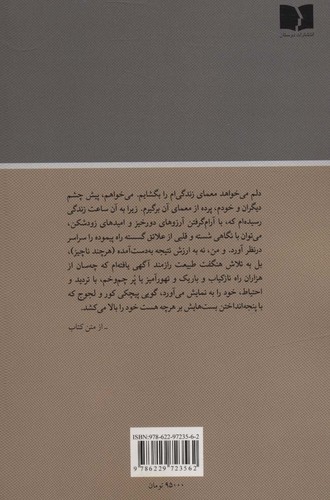 انتشارات دوستان
دلم می‌خواهد معمای زندگی‌ام را بگشایم. می‌خواهم، پیش چشم
دیگران و خودم، پرده از معمای آن برگیرم. زیرا به آن ساعت زندگی
رسیده‌ام که، با آرام‌گرفتن آرزوهای دورخیز و امیدهای زودشکن،
می‌توان با نگاهی شسته و قلبی از علائق گسسته راه پیموده را سراسر
درنظر آورد. و من، نه به ارزش نتیجه به‌دست‌آمده (هرچند ناچیز)،
بل به تلاش هنگفت طبیعت رازمند آگهی یافته‌ام که چه‌سان از
هزاران راه تاریک‌یاب و باریک و تهورآمیز یا پُر چم‌وخم، با تردید و
احتیاط، خود را به نمایش می‌آورد، گویی پیچکی کور و لجوج که
با پنجه‌انداختن بست‌هایش بر هرچه هست خود را بالا می‌کشد.
ـ از متن کتاب
ISBN: 978-622-97235-6-2
9 786229 723562
۹۵۰۰۰ تومان